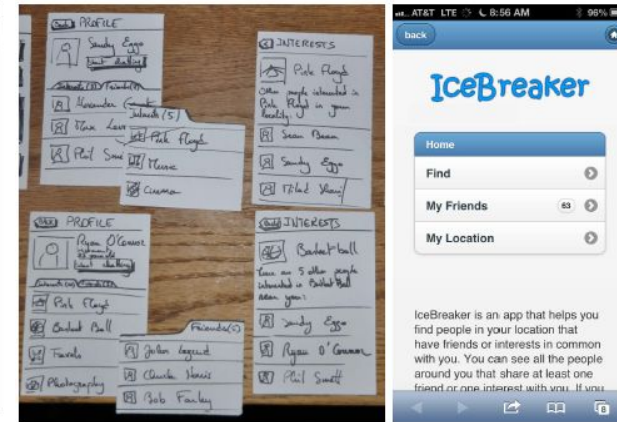 PROFILE
Sandy Eggo
Interests (5) Friends(
Alexander
Max
Phil
Interests (5)
Pink Floyd
Music
Cinema
INTERESTS
Pink Floyd
Other people interested in
Pink Floyd in your
locality:
Sean Bean
Sandy Eggo
PROFILE
Ryan O'Connor
Pink Floyd
Basket Ball
Travels
Photography
Friends(
John Legend
Chuck Norris
Bob
INTERESTS
Basket ball
5 other people
interested in Basket Ball
near you:
Sandy Eggo
Ryan O'Connor
Phil
AT&T LTE 8:56 AM 96%
back
IceBreaker
Home
Find
My Friends 63
My Location
IceBreaker is an app that helps you
find people in your location that
have friends or interests in common
with you. You can see all the people
around you that share at least one
friend or one interest with you. If you
8